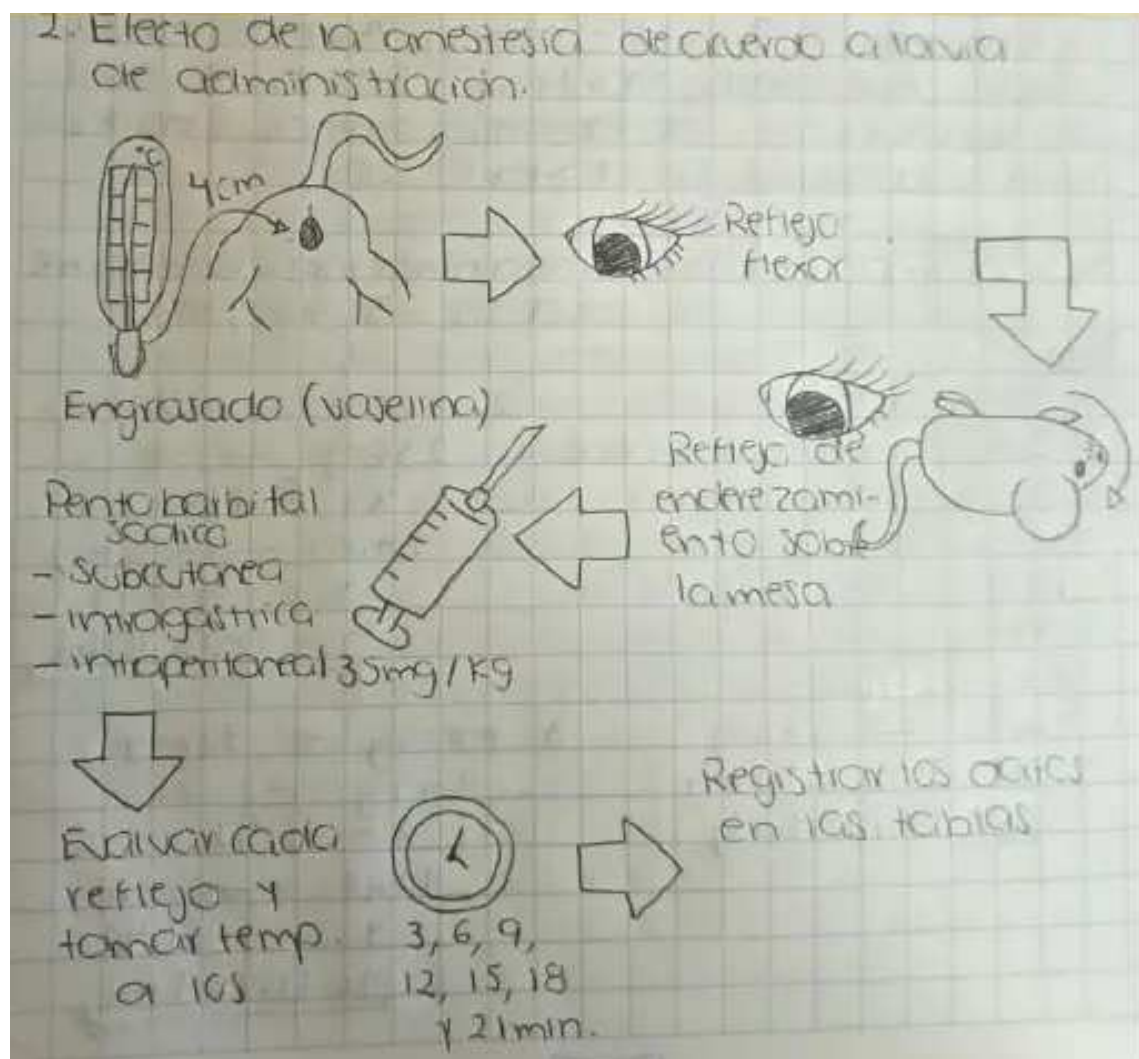 2. Efecto de la anestesia de acuerdo a la via
de administración.
°C
4cm
Engrasado (vaselina)
Reflejo
flexor
Reflejo de
enderezami-
ento sobre
la mesa
Pentobarbital
sódico
- subcutanea
- intragástrica
- intraperitoneal 35mg/Kg
Evaluar cada
reflejo y
tomar temp.
a los
3, 6, 9,
12, 15, 18
y 21 min.
Registrar los datos
en las tablas